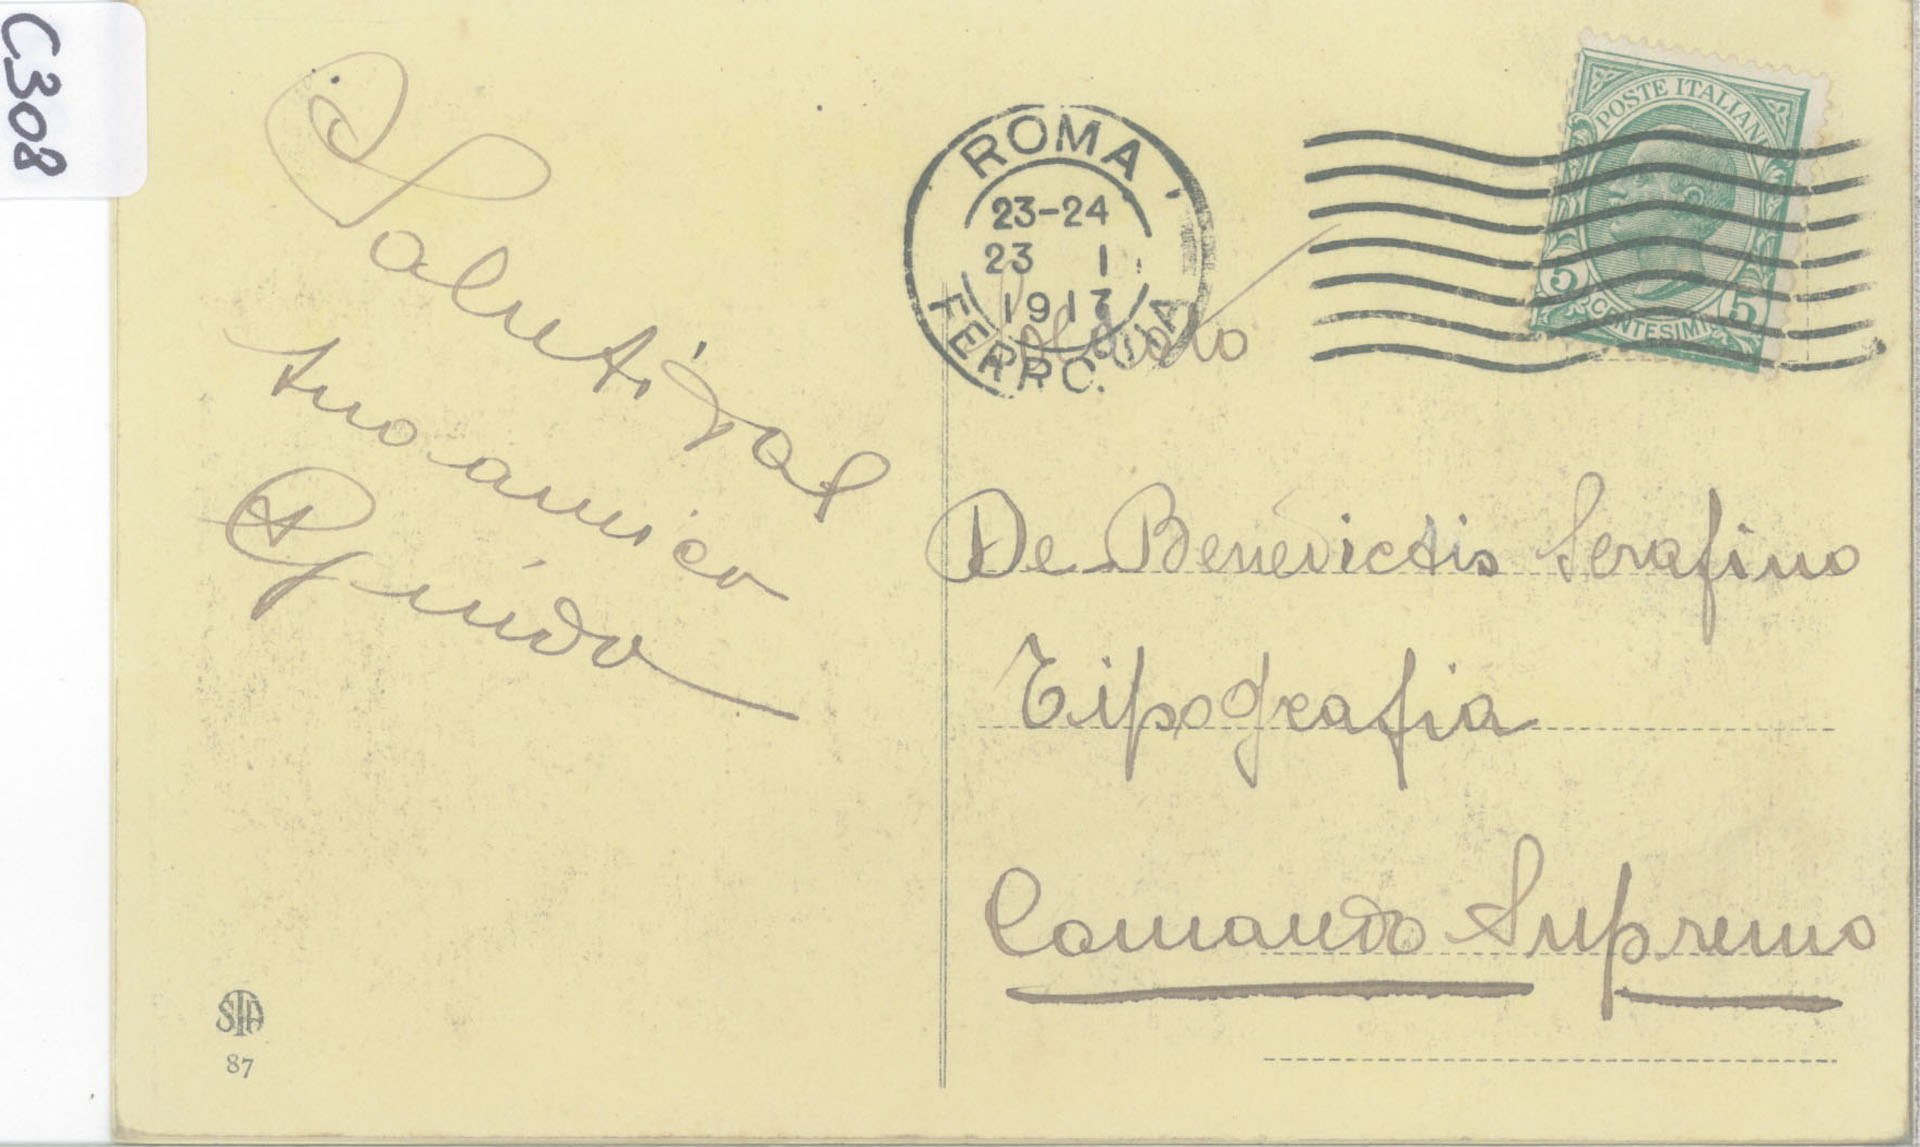 C308
Saluti dal
tuo amico
Guido
ROMA
23-24
23 1
1917
FERROVIA
POSTE ITALIANE
5 CENTESIMI 5
De Benedictis Serafino
Tipografia
Comando Supremo
STA
87